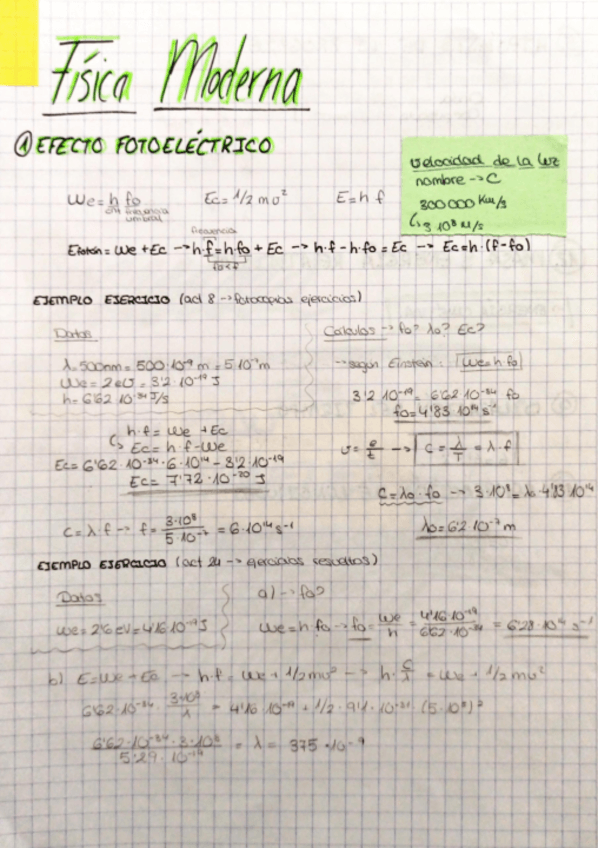 Física Moderna
① EFECTO FOTOELÉCTRICO
velocidad de la luz
nombre → C
300 000 Km/s
↳ 3·10⁸ m/s
We = h fo   Ec = 1/2 mv²   E = h f
frecuencia umbral
frecuencia
Efotón = We + Ec → h·f = h·fo + Ec → h·f - h·fo = Ec → Ec = h·(f-fo)
fo<f
EJEMPLO EJERCICIO (act 8 → fotocopias ejercicios)
Datos
λ = 500nm = 500·10⁻⁹ m = 5·10⁻⁷ m
We = 2eV = 3'2·10⁻¹⁹ J
h = 6'62·10⁻³⁴ J/s
h·f = We + Ec
↳ Ec = h·f - We
Ec = 6'62·10⁻³⁴·6·10¹⁴ - 3'2·10⁻¹⁹
Ec = 7'72·10⁻²⁰ J
C = λ·f → f = 3·10⁸ / 5·10⁻⁷ = 6·10¹⁴ s⁻¹
Cálculos → fo? λo? Ec?
→ según Einstein: We = h fo
3'2·10⁻¹⁹ = 6'62·10⁻³⁴ fo
fo = 4'83·10¹⁴ s⁻¹
v = e/t → C = λ/T = λ·f
C = λo·fo → 3·10⁸ = λo·4'83·10¹⁴
λo = 6'2·10⁻⁷ m
EJEMPLO EJERCICIO (act 24 → ejercicios resueltos)
Datos
We = 2'6 eV = 4'16·10⁻¹⁹ J
a) → fo?
We = h·fo → fo = We/h = 4'16·10⁻¹⁹ / 6'62·10⁻³⁴ = 6'28·10¹⁴ s⁻¹
b) E = We + Ec → h·f = We + 1/2mv² → h·C/λ = We + 1/2mv²
6'62·10⁻³⁴·3·10⁸/λ = 4'16·10⁻¹⁹ + 1/2·9'1·10⁻³¹·(5·10⁵)²
6'62·10⁻³⁴·3·10⁸ / 5'29·10⁻¹⁹ = λ = 375·10⁻⁹